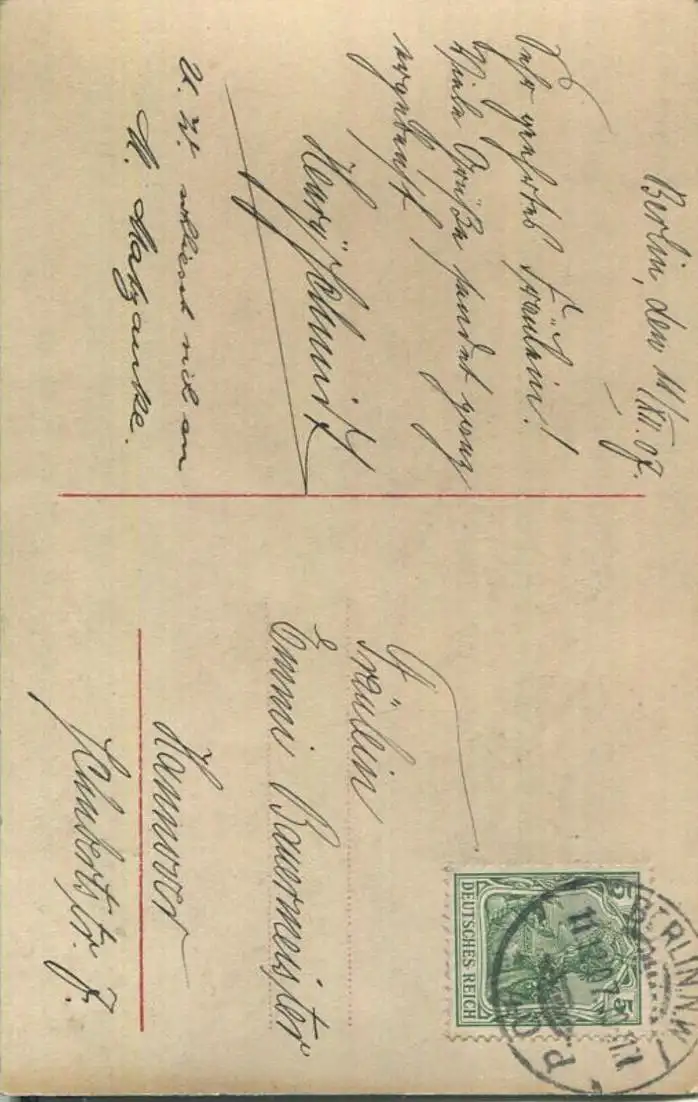 Berlin, den 11/XII. 07.
Sehr geehrtes Fräulein!
Viele Grüße sendet ganz
ergebenst
Harry Schmidt
U. W. schließt sich an
M. Matzanke.
Fräulein
Emmi Bauermeister
Hannover
Schubertstr. 7.
5 5
DEUTSCHES REICH
BERLIN N.W.
11.12.07